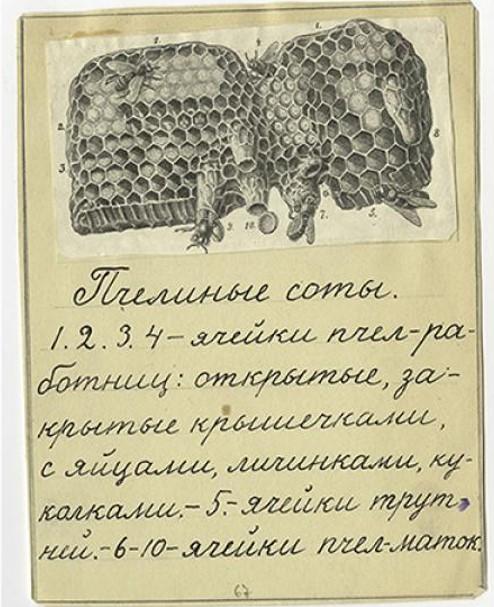 1.
4.
1.
2.
3.
8
9.
10.
6
7.
5.
Пчелиные соты.
1.2.3.4 – ячейки пчел-ра-
ботниц: открытые, за-
крытые крышечками,
с яйцами, личинками, ку-
колками.– 5.– ячейки трут-
ней.– 6-10 – ячейки пчел-маток.
67